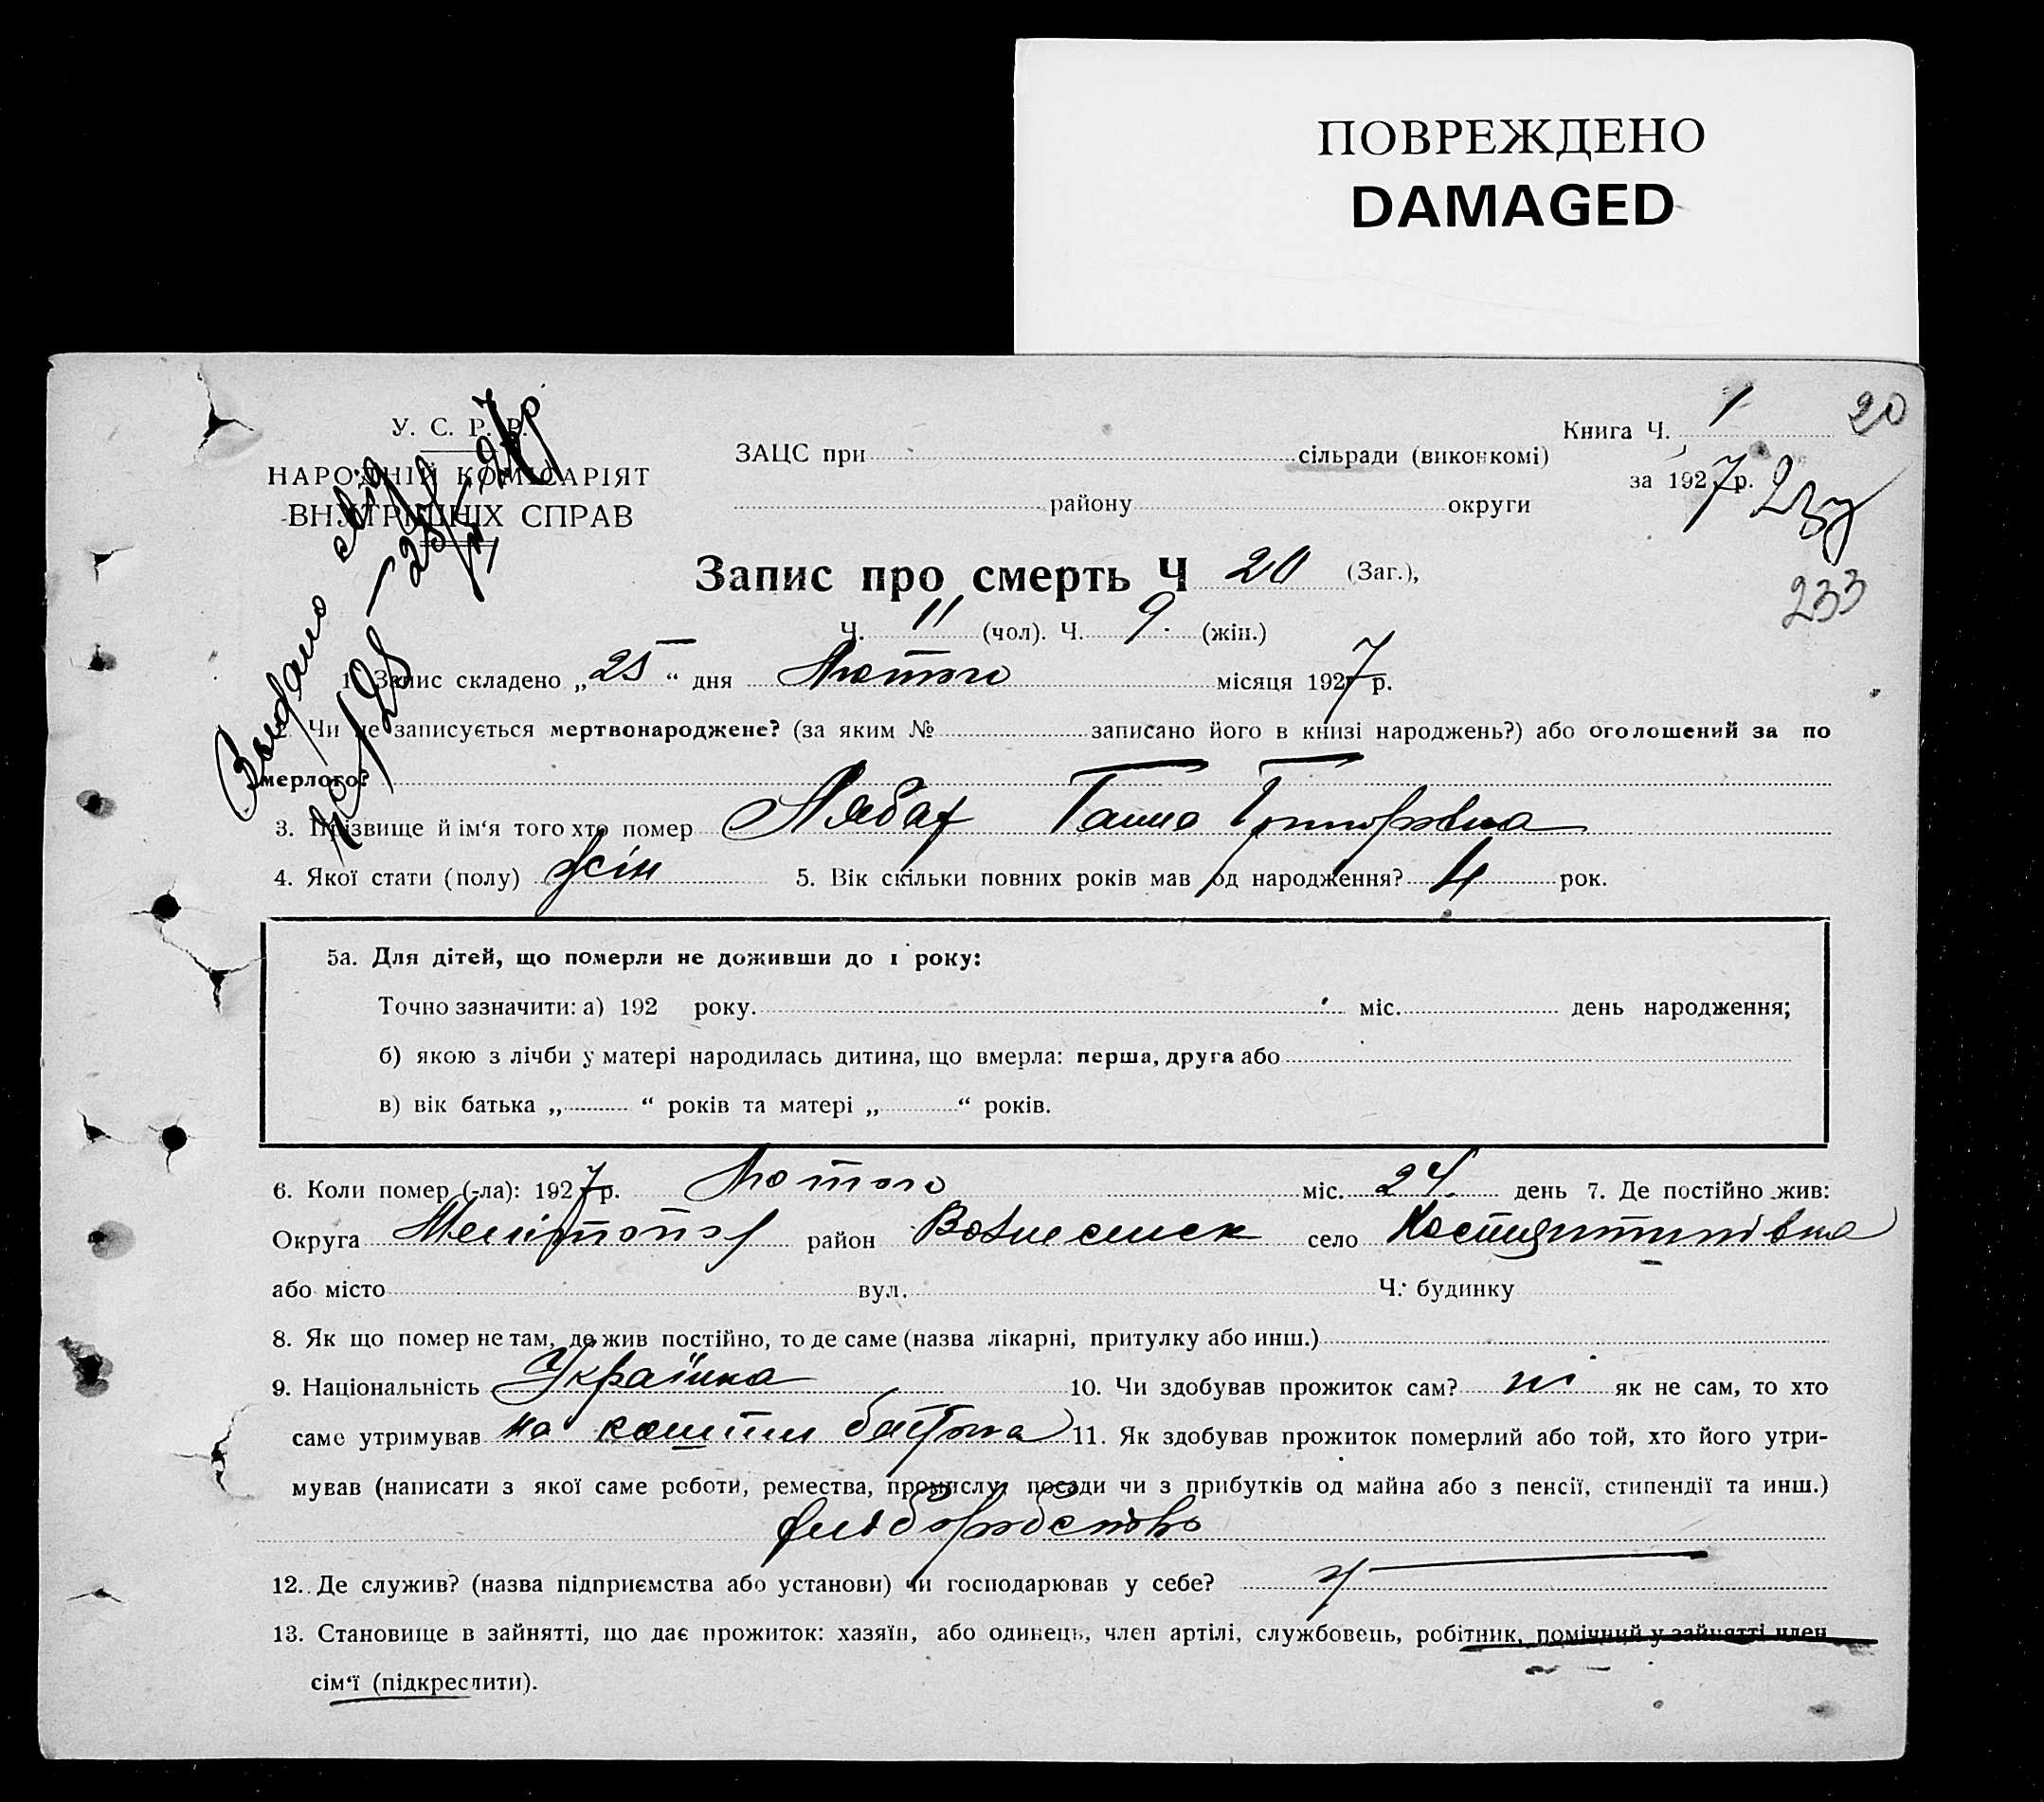 ПОВРЕЖДЕНО
DAMAGED
У. С. Р. Р.
НАРОДНІЙ КОМІСАРІЯТ
ВНУТРІШНІХ СПРАВ
ЗАЦС при сільради (виконкомі)
району округи
Книга Ч. 1
20
за 1927 р.
233
Запис про смерть Ч 20 (Заг.),
Ч. 11 (чол). Ч. 9. (жін.)
1. Запис складено „25“ дня Лютого місяця 1927 р.
2. Чи не записується мертвонароджене? (за яким № записано його в книзі народжень?) або оголошений за по
мерлого?
3. Прізвище й ім‘я того хто помер Лябах Ганна Григорівна
4. Якої стати (полу) жін 5. Вік скільки повних років мав од народження? 4 рок.
5а. Для дітей, що померли не доживши до 1 року:
Точно зазначити: а) 192 року. міс. день народження;
б) якою з лічби у матері народилась дитина, що вмерла: перша, друга або
в) вік батька „ “ років та матері „ “ років.
6. Коли помер (-ла): 1927 р. Лютого міс. 24. день 7. Де постійно жив:
Округа Мелітопол район Вознесенск село Костянтинівка
або місто вул. Ч. будинку
8. Як що помер не там, де жив постійно, то де саме (назва лікарні, притулку або инш.)
9. Національність Українка 10. Чи здобував прожиток сам? ні як не сам, то хто
саме утримував на кошти батька 11. Як здобував прожиток померлий або той, хто його утри-
мував (написати з якої саме роботи, ремества, промислу, посади чи з прибутків од майна або з пенсії, стипендії та инш.)
хліборобство
12. Де служив? (назва підприємства або установи) чи господарював у себе?
13. Становище в зайнятті, що дає прожиток: хазяїн, або одинець, член артілі, службовець, робітник, помічний у зайнятті член
сім‘ї (підкреслити).
Видано